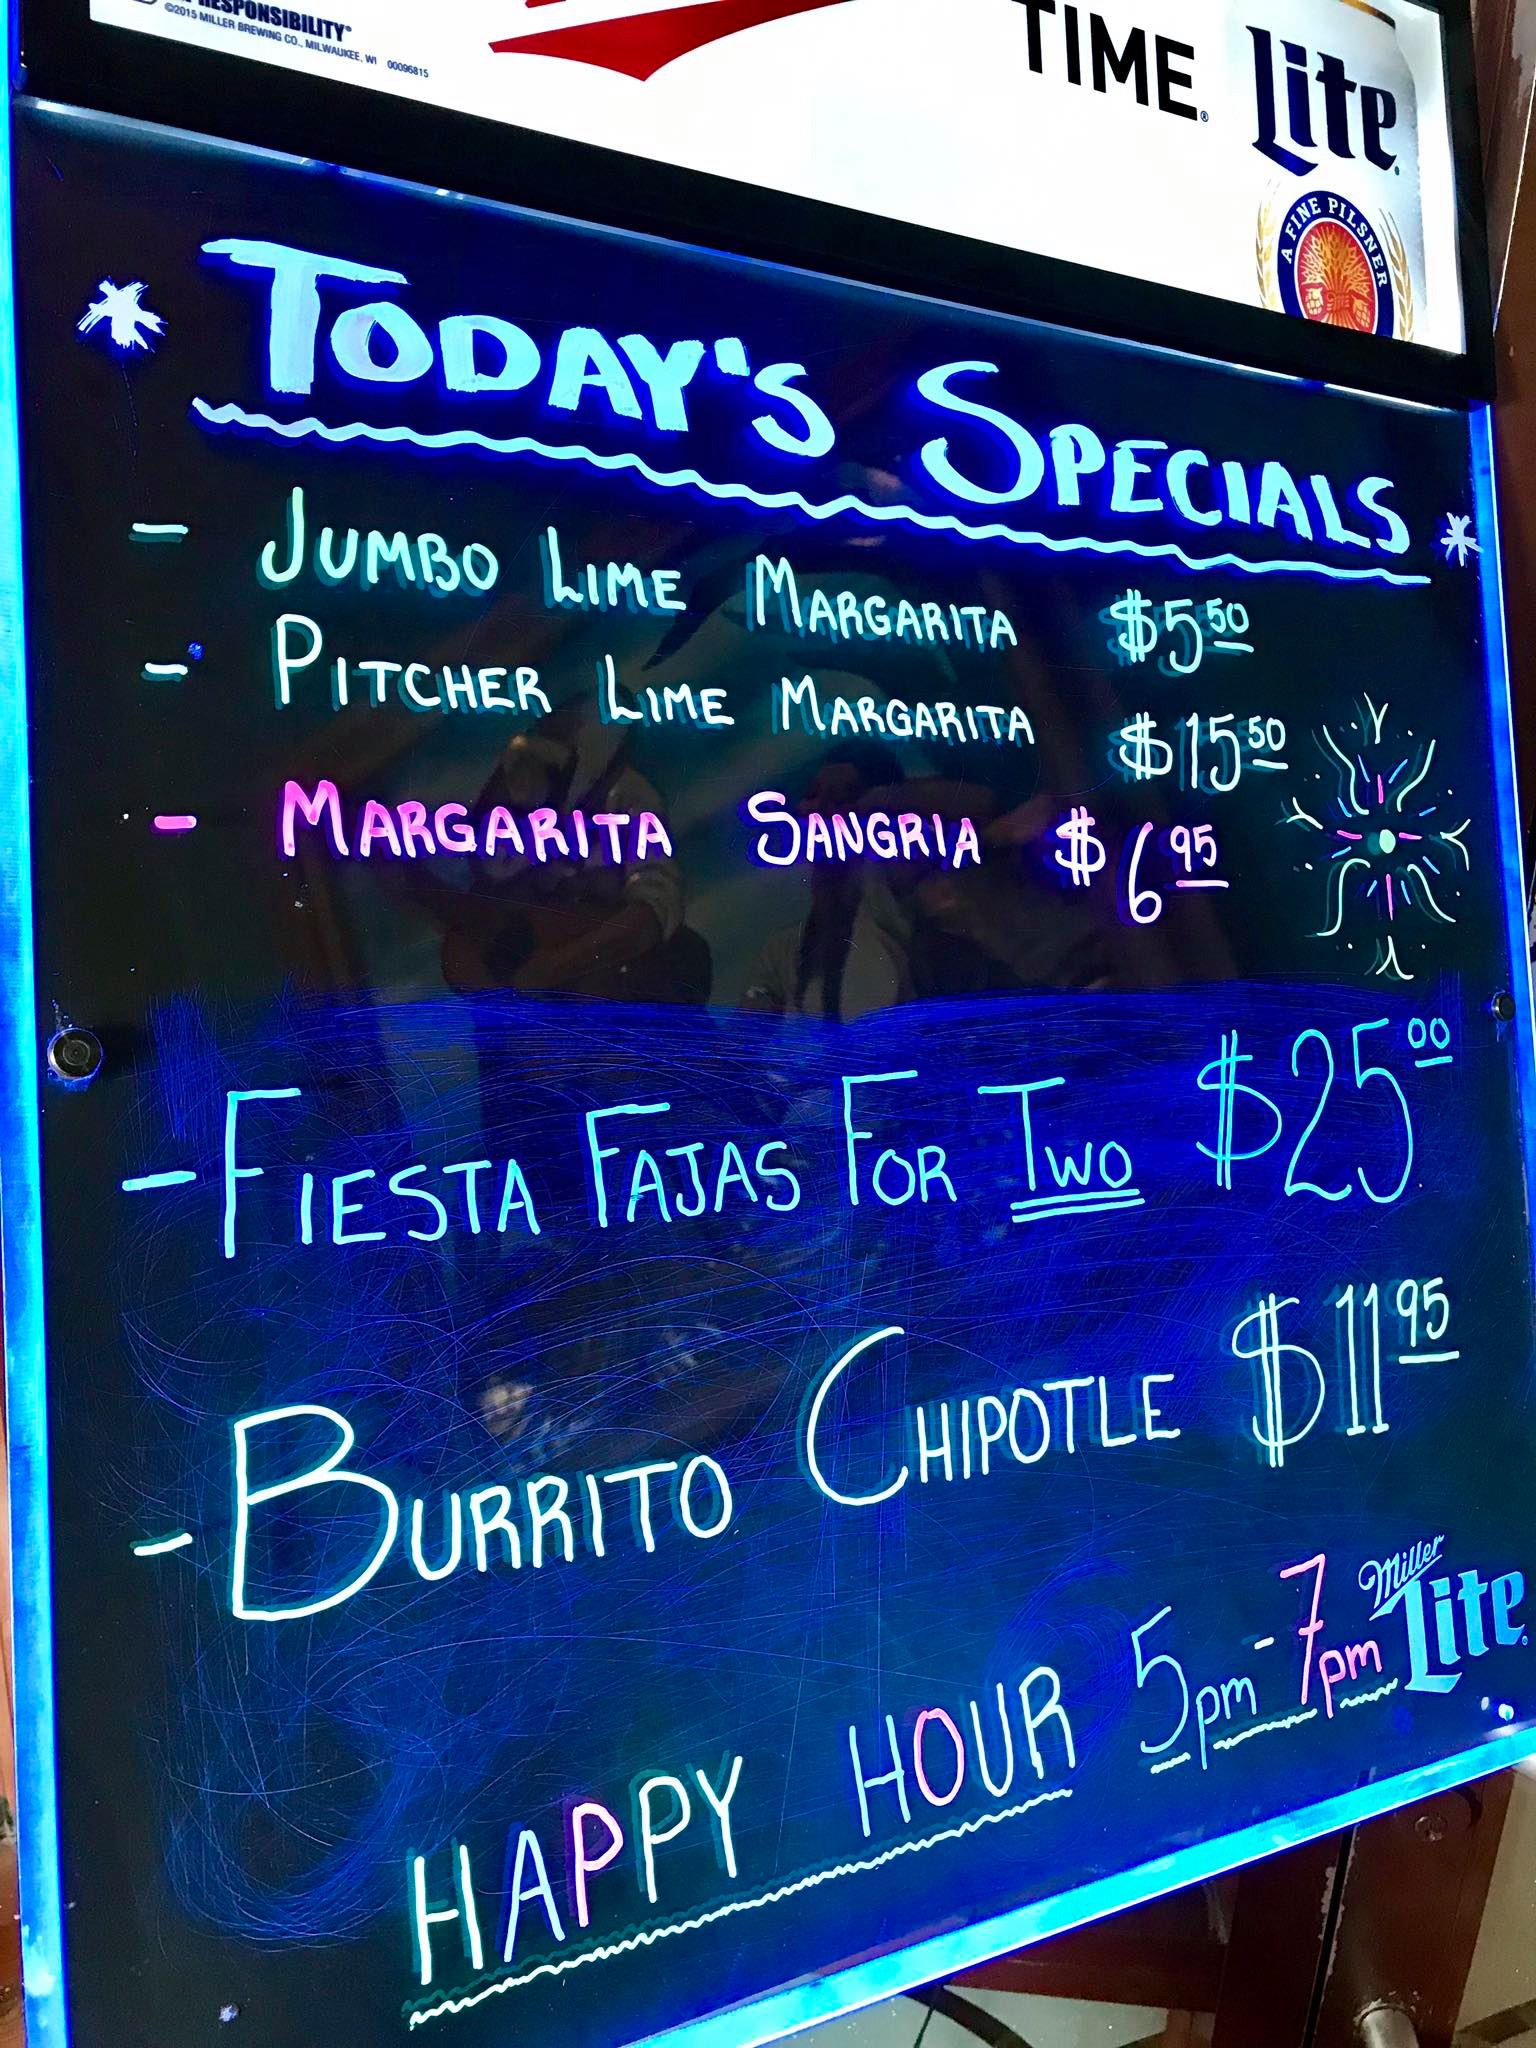 RESPONSIBILITY®
©2015 MILLER BREWING CO., MILWAUKEE, WI 00096815
TIME®
Lite
A FINE PILSNER
* TODAY'S SPECIALS *
- JUMBO LIME MARGARITA $5.50
- PITCHER LIME MARGARITA $15.50
- MARGARITA SANGRIA $6.95
- FIESTA FAJAS FOR TWO $25.00
- BURRITO CHIPOTLE $11.95
HAPPY HOUR 5pm-7pm
Miller
Lite